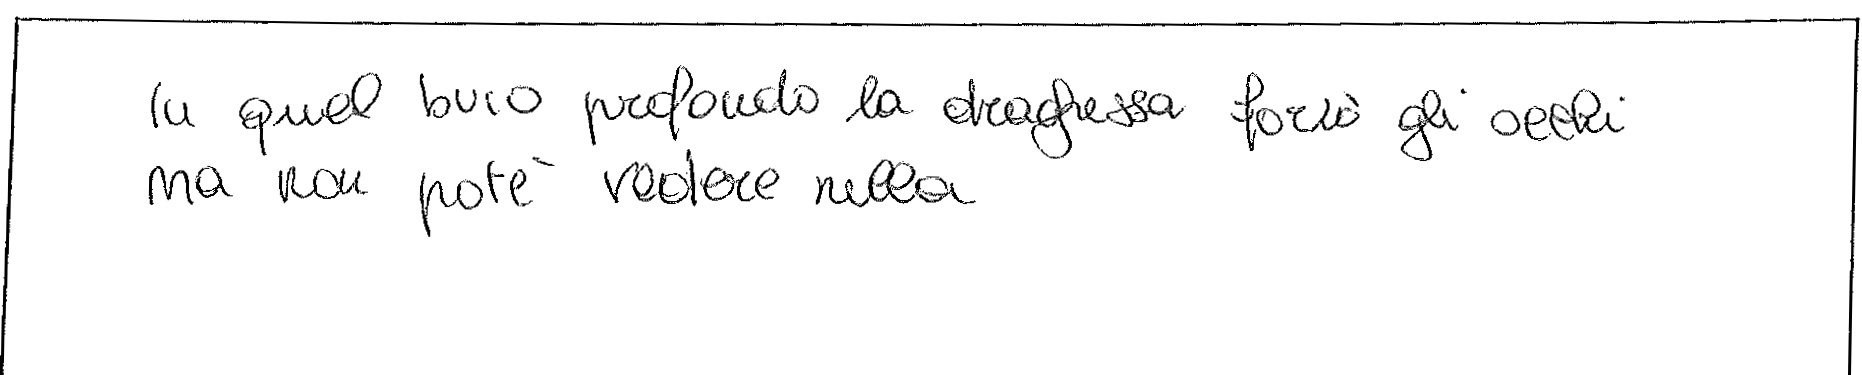 In quel buio profondo la draghessa forzò gli occhi
ma non potè vedere nulla